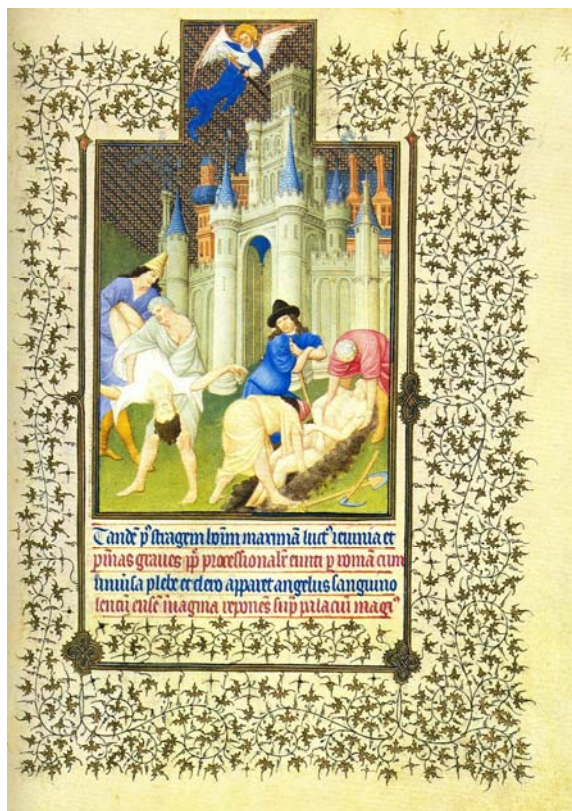 74
Tandē pꝰ stragem hoīm maximā luctꝰ ieiunia et
pūnas graues ip̄i processionalr̄ eunti p romā cum
uniūsa plebe et clero apparet angelus sanguino
lentū ensē ī uagina reponēs sup palaciū magꝰ